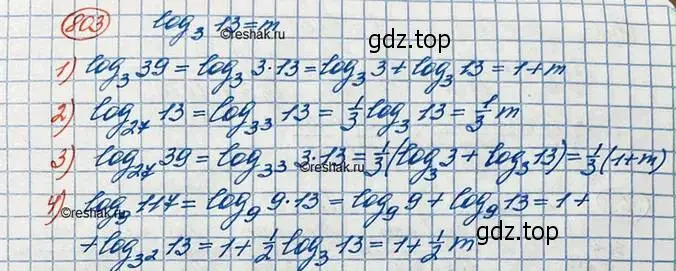 803 log₃ 13 = m
©reshak.ru
gdz.top
1) log₃ 39 = log₃ 3·13 = log₃ 3 + log₃ 13 = 1 + m
2) log₂₇ 13 = log₃³ 13 = 1/3 log₃ 13 = 1/3 m
3) log₂₇ 39 = log₃³ 3·13 = 1/3 (log₃ 3 + log₃ 13) = 1/3 (1+m)
4) log₉ 117 = log₉ 9·13 = log₉ 9 + log₉ 13 = 1 +
©reshak.ru
+ log₃² 13 = 1 + 1/2 log₃ 13 = 1 + 1/2 m
©reshak.ru
gdz.top